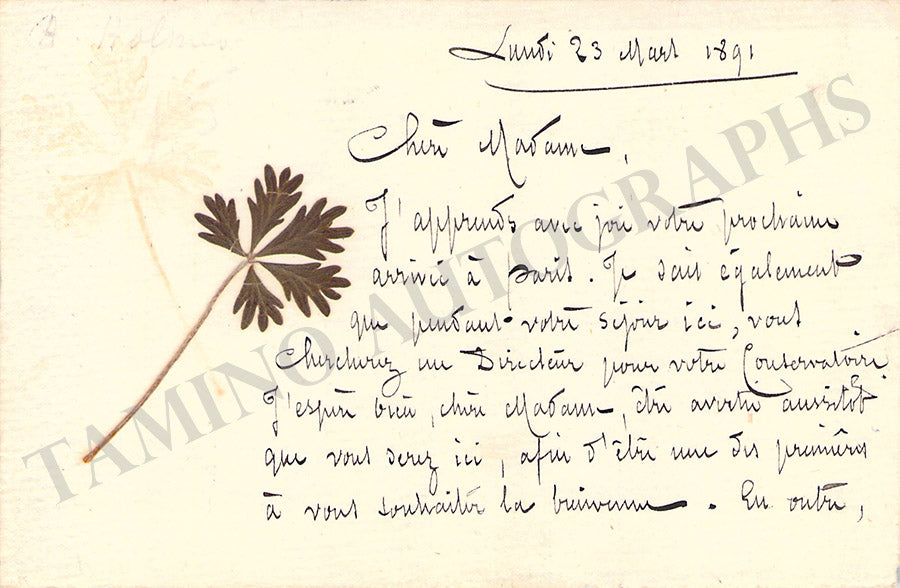 Lundi 23 Mars 1891
Chère Madame,
J'apprends avec joie votre prochaine
arrivée à Paris. Je sais également
que pendant votre séjour ici, vous
chercherez un Directeur pour votre Conservatoire.
J'espère bien, chère Madame, être avertie aussitôt
que vous serez ici, afin d'être une des premières
à vous souhaiter la bienvenue. En outre,
TAMINO AUTOGRAPHS